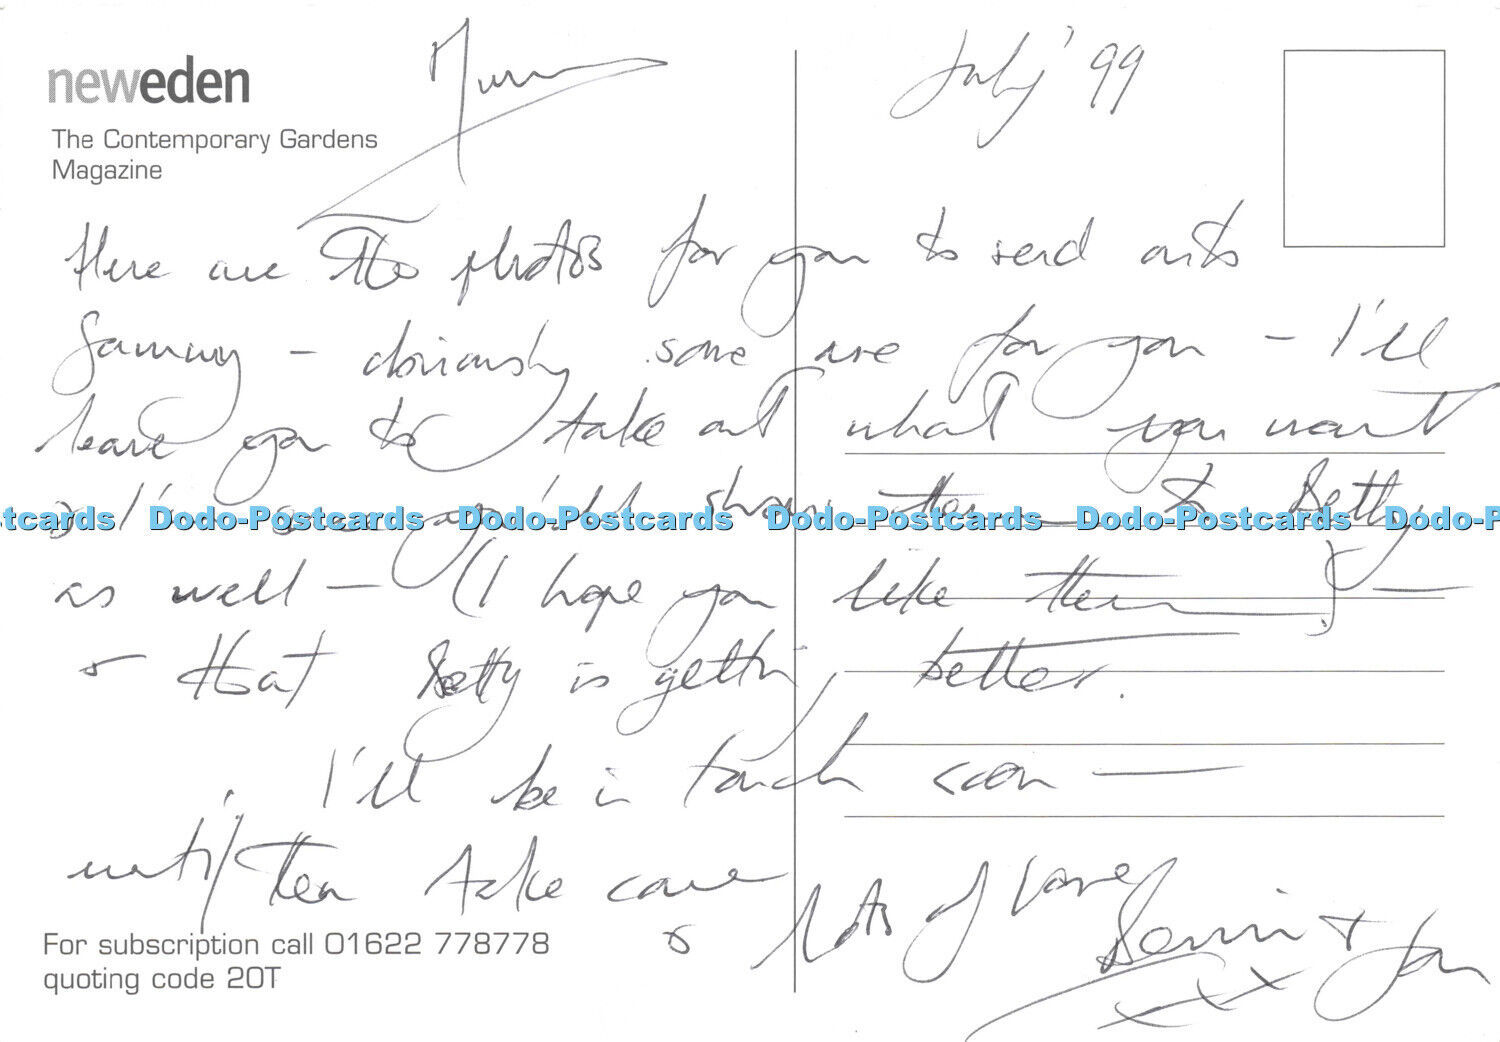 neweden
The Contemporary Gardens
Magazine
July '99
Here are the photos for you to send onto
Sammy - obviously some are for you - I'll
leave you to take out what you want
Dodo-Postcards Dodo-Postcards Dodo-Postcards Dodo-Postcards Dodo-P
show them to Betty
as well - (I hope you like them) -
& that Betty is getting better.
I'll be in touch soon -
until then take care
& lots of love
For subscription call 01622 778778
quoting code 20T
xxx